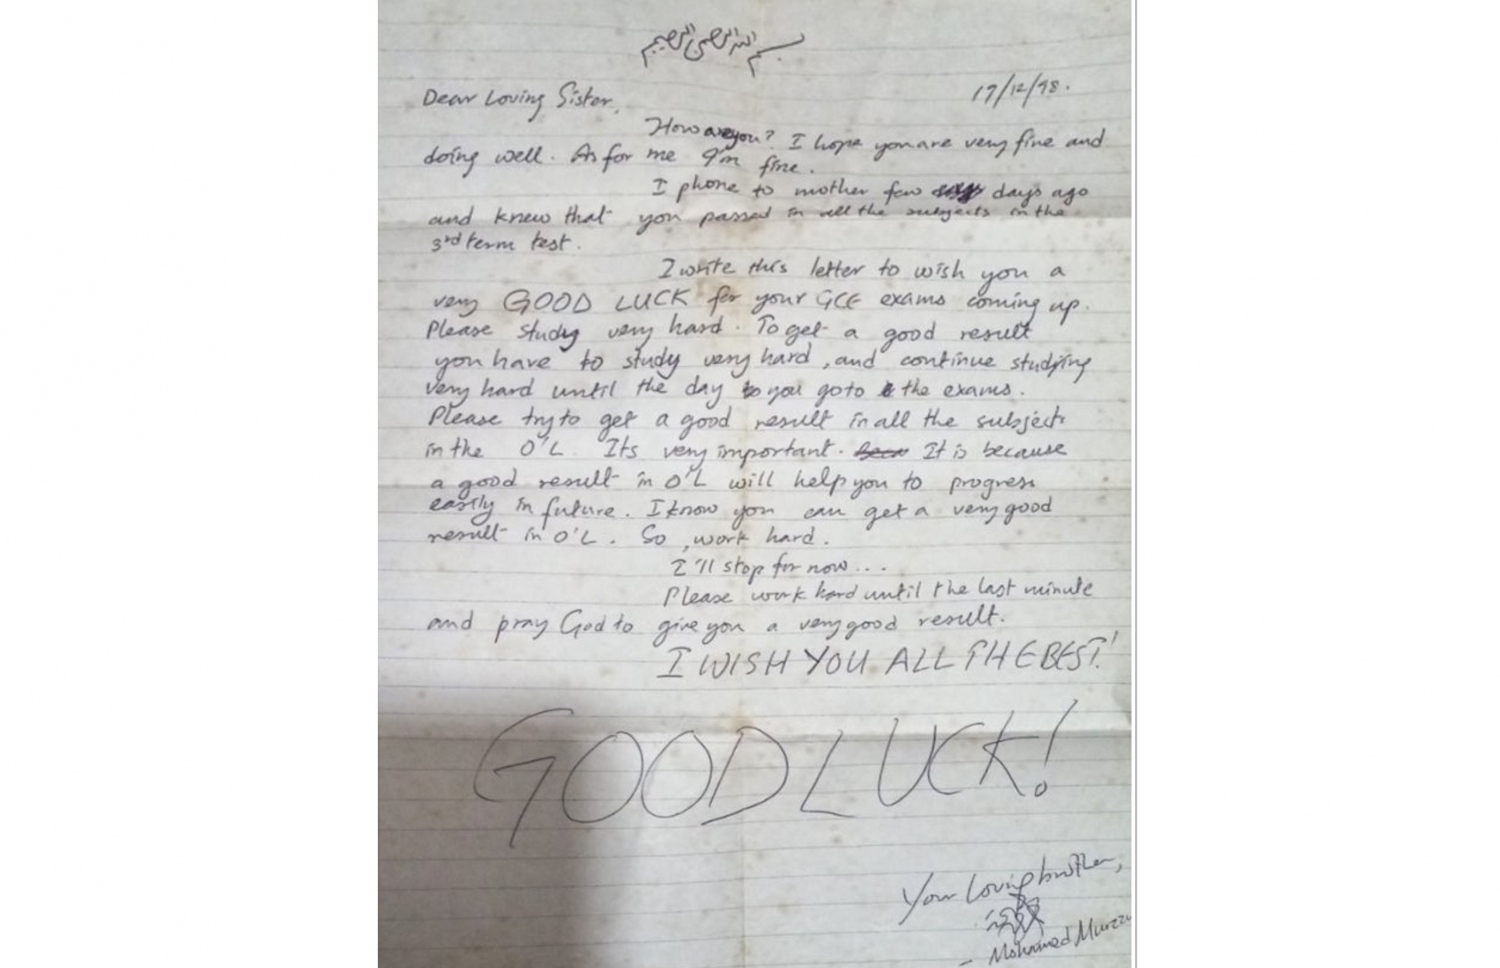 بسم الله الرحمن الرحيم
17/12/98.
Dear Loving Sister,
How are you? I hope you are very fine and
doing well. As for me I'm fine.
I phone to mother few days ago
and knew that you passed in all the subjects in the
3rd term test.
I write this letter to wish you a
very GOOD LUCK for your GCE exams coming up.
Please study very hard. To get a good result
you have to study very hard, and continue studying
very hard until the day you go to the exams.
Please try to get a good result in all the subjects
in the O'L. Its very important. It is because
a good result in O'L will help you to progress
easily in future. I know you can get a very good
result in O'L. So, work hard.
I'll stop for now...
Please work hard until the last minute
and pray God to give you a very good result.
I WISH YOU ALL THE BEST!
GOOD LUCK!
Your Loving brother,
- Mohamed